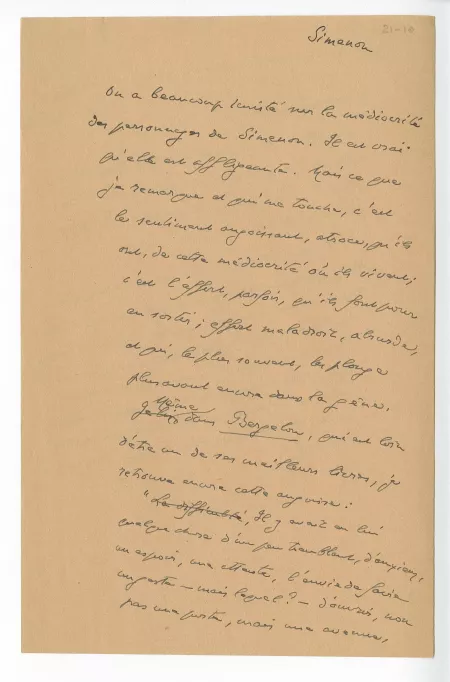 21-10
Simenon
On a beaucoup insisté sur la médiocrité
des personnages de Simenon. Il est vrai
qu'elle est affligeante. Mais ce que
je remarque et qui me touche, c'est
le sentiment angoissant, atroce, qu'ils
ont, de cette médiocrité où ils vivent ;
c'est l'effort, parfois, qu'ils font pour
en sortir ; effort maladroit, absurde,
et qui, le plus souvent, les plonge
plus avant encore dans la gêne.
Même
dans Bergelon, qui est loin
d'être un de ses meilleurs livres, je
retrouve encore cette angoisse :
" La difficulté, Il y avait en lui
quelque chose d'un peu tremblant, d'anxieux,
un espoir, une attente, l'envie de faire
un geste — mais lequel ? — d'ouvrir, non
pas une porte, mais une avenue,